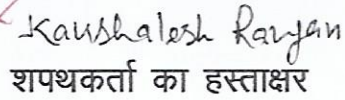 Kaushalesh Ranjan
शपथकर्ता का हस्ताक्षर